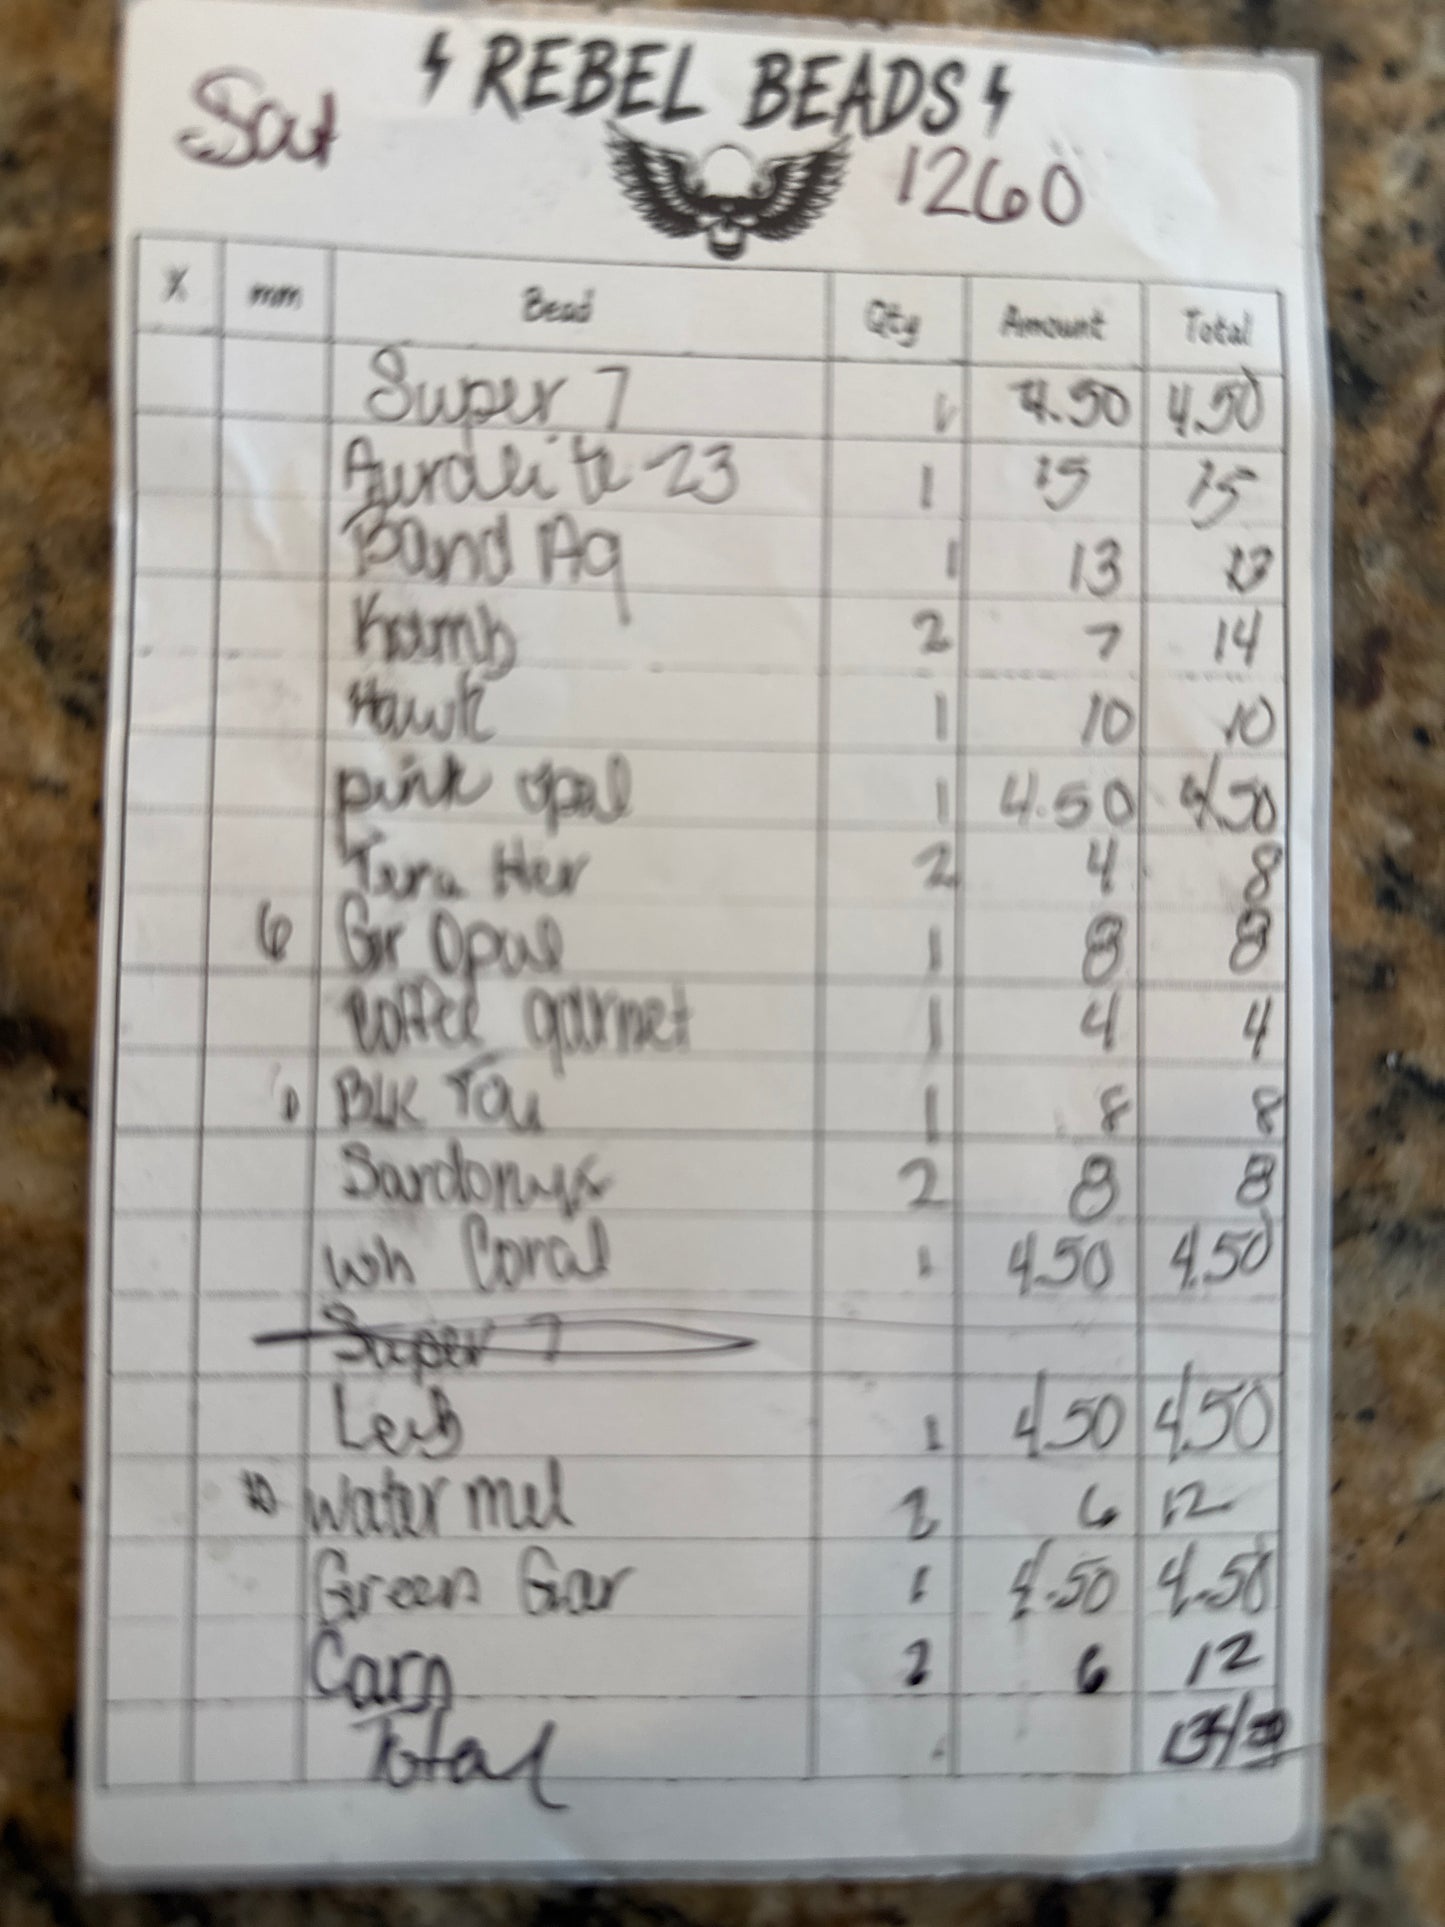 REBEL BEADS
Sat 1260
X mm Bead Qty Amount Total
Super 7 1 4.50 4.50
Auralite 23 1 15 15
Band Ag 1 13 13
Kamb 2 7 14
Hawk 1 10 10
pink opal 1 4.50 4.50
Tera Her 2 4 8
6 Gr Opal 1 8 8
Coffee garnet 1 4 4
Blk Tou 1 8 8
Sardonyx 2 8 8
Wh Coral 1 4.50 4.50
Super 7
1 4.50 4.50
10 Water mel 2 6 12
Green Gar 1 4.50 4.50
Carn 2 6 12
Total